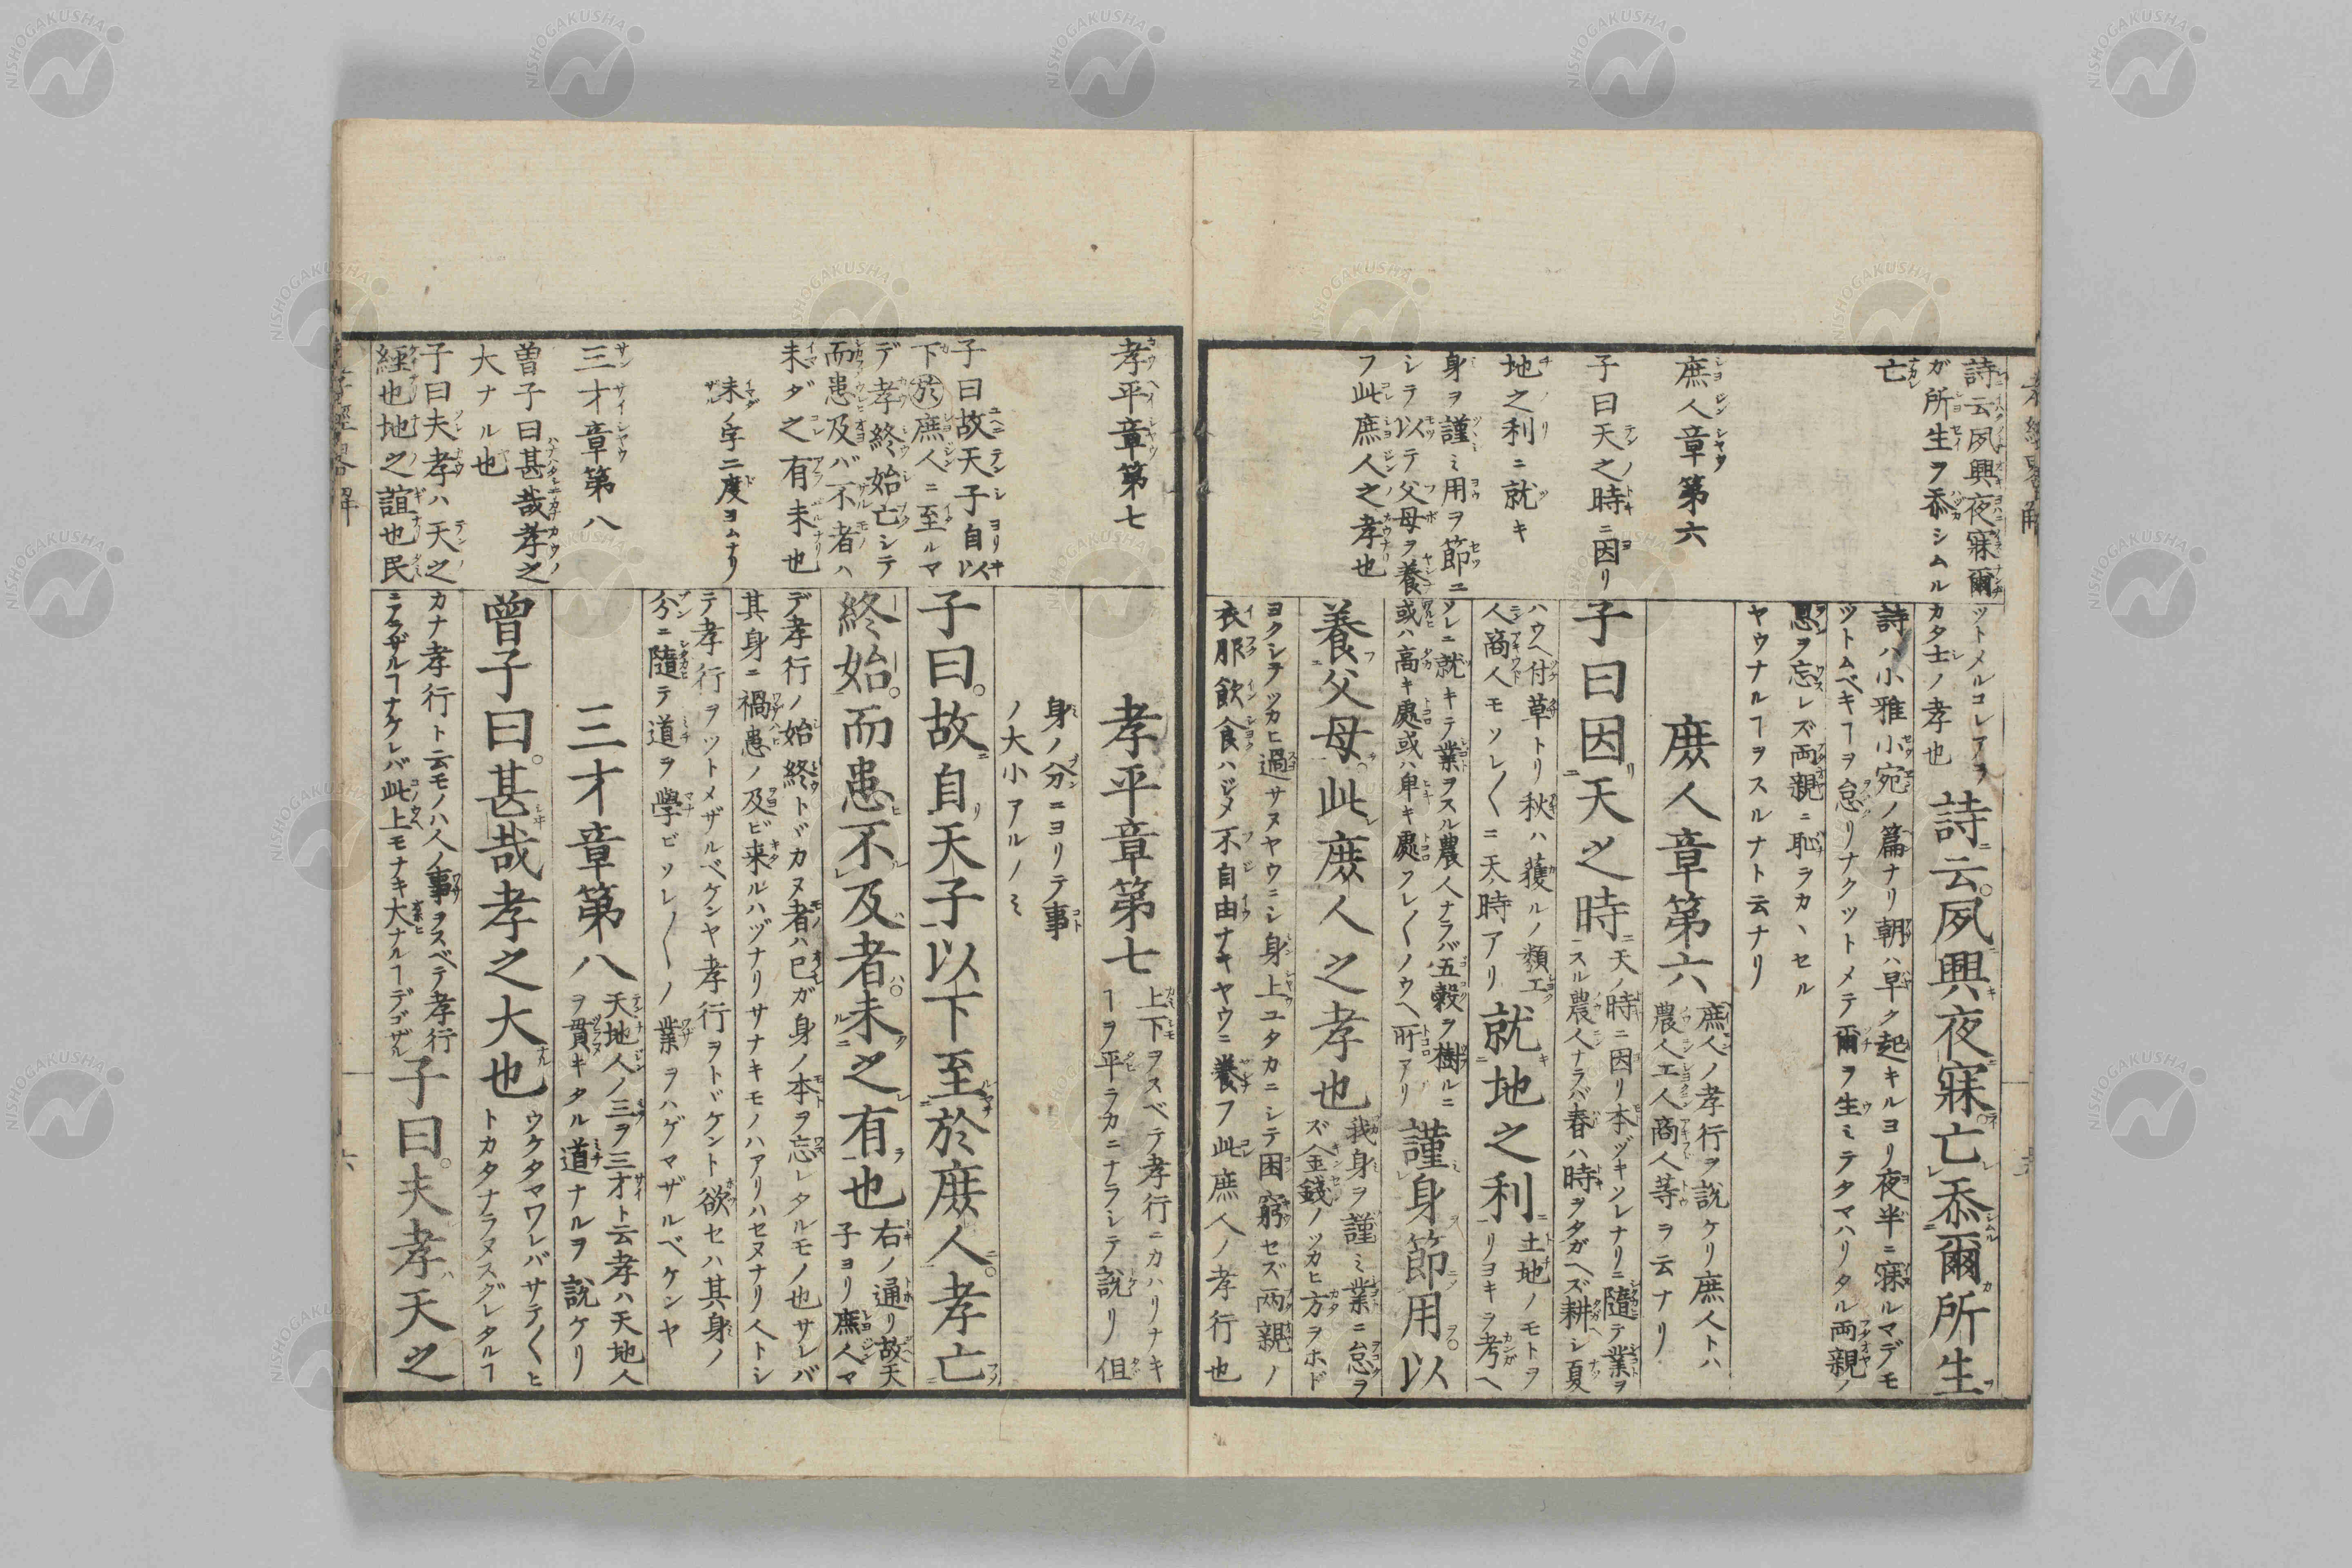 詩云夙興夜寐爾
ガ所生ヲ忝シムル
亡
庶人章第六
子曰天之時ニ因リ
地之利ニ就キ
身ヲ謹ミ用ヲ節ニ
シテ以テ父母ヲ養
フ此庶人之孝也
ツトメルコレアヲ
カタ士ノ孝也
詩云。夙興夜寐亡忝爾所生
詩ハ小雅小宛ノ篇ナリ朝ハ早ク起キルヨリ夜半ニ寐ルマデモ
ツトムベキヿヲ怠リナクツトメテ爾ヲ生ミテタマハリタル両親ノ
恩ヲ忘レズ両親ニ恥ヲカヽセル
ヤウナルヿヲスルナト云ナリ
庶人章第六
庶人ノ孝行ヲ説ケリ庶人トハ
農人工人商人等ヲ云ナリ
子曰因天之時
天ノ時ニ因リ本ヅキソレナリニ隨テ業ヲ
スル農人ナラバ春ハ時ヲタガヘズ耕シ夏
ハウヘ付草トリ秋ハ獲ルノ類工
人商人モソレ〱ニ天ノ時アリ
就地之利
土地ノモトヲ
リヨキヲ考ヘ
ソレニ就キテ業ヲスル農人ナラバ五穀ヲ樹ルニ
或ハ高キ處或ハ卑キ處フレ〱ノウヘ所アリ
謹身節用以
養父母此庶人之孝也
我身ヲ謹ミ業ニ怠ラ
ズ金錢ノツカヒ方ヲホド
ヨクシテツカヒ過サヌヤウニシ身上ユタカニシテ困窮セズ両親ノ
衣服飲食ハジメ不自由ナキヤウニ養フ此庶人ノ孝行也
孝平章第七
子曰故天子自以
下於庶人ニ至ルマ
デ孝終始亡シテ
而患及バ不者ハ
未ダ之有未也
未ノ字二度ヨムナリ
三才章第八
曽子曰甚哉孝之
大ナル也
子曰夫孝ハ天之
經也地之誼也民
孝平章第七
上下ヲスベテ孝行ニカハリナキ
ヿヲ平ラカニナラシテ説リ但
身ノ分ニヨリテ事
ノ大小アルノミ
子曰。故自天子以下至於庶人。孝亡
終始。而患不及者未之有也
右ノ通リ故天
子ヨリ庶人マ
デ孝行ノ始終トヾカヌ者ハ己ガ身ノ本ヲ忘レタルモノ也サレバ
其身ニ禍患ノ及ビ来ルハヅナリサナキモノハアリハセヌナリ人トシ
テ孝行ヲツトメザルベケンヤ孝行ヲトヾケント欲セハ其身ノ
分ニ隨テ道ヲ學ビソレ〱ノ業ヲハゲマザルベケンヤ
三才章第八
天地人ノ三ヲ三才ト云孝ハ天地人
ヲ貫キタル道ナルヲ説ケリ
曽子曰。甚哉孝之大也
ウケタマワレバサテ〱ヒ
トカタナラヌスグレタルヿ
カナ孝行ト云モノハ人ノ事ヲスベテ孝行
ニアラザルヿナケレバ此上モナキ大ナルヿデゴザル
子曰。夫孝天之
六